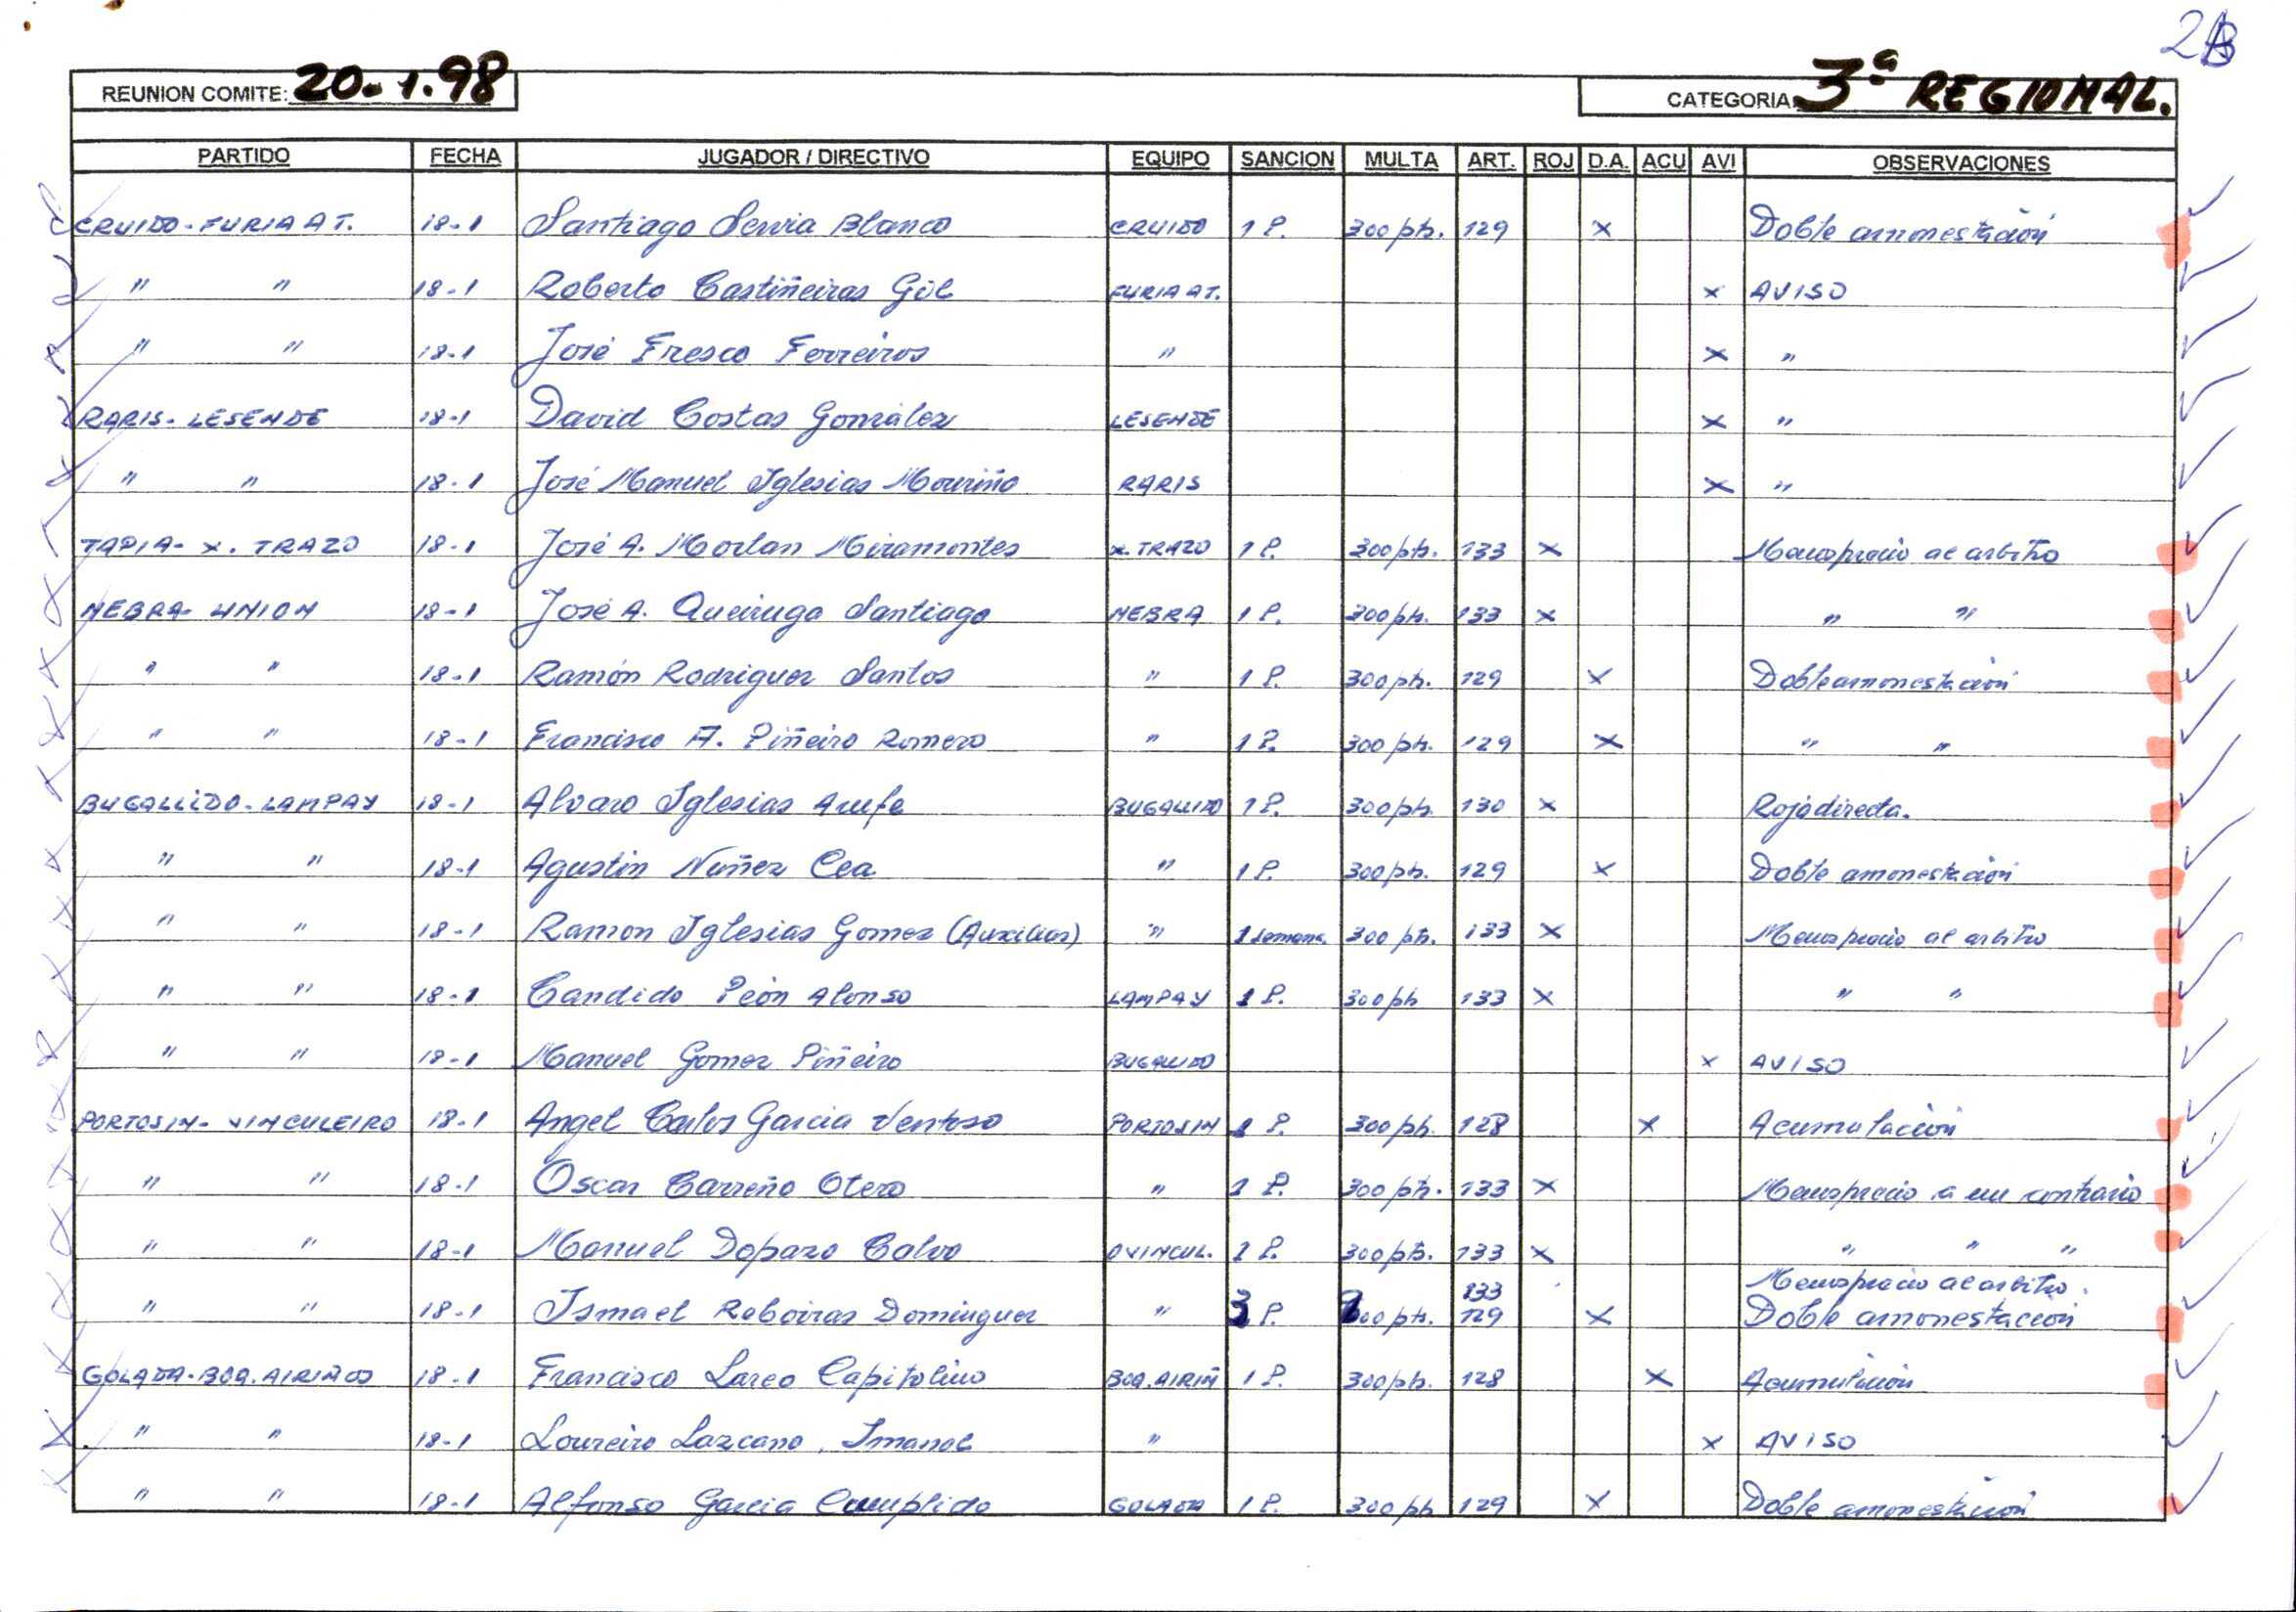 REUNION COMITE: 20-1.98
CATEGORIA: 3ª REGIONAL.
PARTIDO FECHA JUGADOR / DIRECTIVO EQUIPO SANCION MULTA ART. ROJ D.A. ACU AVI OBSERVACIONES
CRUIDO-FURIA AT. 18-1 Santiago Servia Blanco CRUIDO 1 P. 300 pts. 129 x Doble amonestación
" " 18-1 Roberto Castiñeiras Gil FURIA AT. x AVISO
" " 18-1 José Fresco Ferreiros " x "
RARIS-LESENDE 18-1 David Costas González LESENDE x "
" " 18-1 José Manuel Iglesias Mouriño RARIS x "
TAPIA- X. TRAZO 18-1 José A. Morlan Miramontes X. TRAZO 1 P. 300 pts. 133 x Menosprecio al arbitro
NEBRA-UNION 18-1 José A. Queiruga Santiago NEBRA 1 P. 300 pts. 133 x " "
" " 18-1 Ramón Rodriguez Santos " 1 P. 300 pts. 129 x Doble amonestación
" " 18-1 Francisco A. Piñeiro Romero " 1 P. 300 pts. 129 x " "
BUGALLIDO-LAMPAY 18-1 Alvaro Iglesias Arufe BUGALLIDO 1 P. 300 pts. 130 x Roja directa.
" " 18-1 Agustin Nuñez Cea " 1 P. 300 pts. 129 x Doble amonestación
" " 18-1 Ramon Iglesias Gomez (Auxiliar) " 1 semana. 300 pts. 133 x Menosprecio al arbitro
" " 18-1 Candido Peón Alonso LAMPAY 1 P. 300 pts 133 x " "
" " 18-1 Manuel Gomez Piñeiro BUGALLIDO x AVISO
PORTOSIN- VINCULEIRO 18-1 Angel Carlos Garcia Ventoso PORTOSIN 1 P. 300 pts. 128 x Acumulación
" " 18-1 Oscar Carreño Otero " 1 P. 300 pts. 133 x Menosprecio a un contrario
" " 18-1 Manuel Dopazo Calvo OVINCUL. 1 P. 300 pts. 133 x " " "
133 Menosprecio al arbitro.
" " 18-1 Ismael Reboiras Dominguez " 3 P. 00 pts. 129 x Doble amonestación
GOLADA-BOA. AIRIÑOS 18-1 Francisco Lareo Capitolino BOA. AIRIÑ 1 P. 300 pts. 128 x Acumulación
" " 18-1 Loureiro Lazcano, Imanol " x AVISO
" " 18-1 Alfonso Garcia Cumplido GOLADA 1 P. 300 pts 129 x Doble amonestación